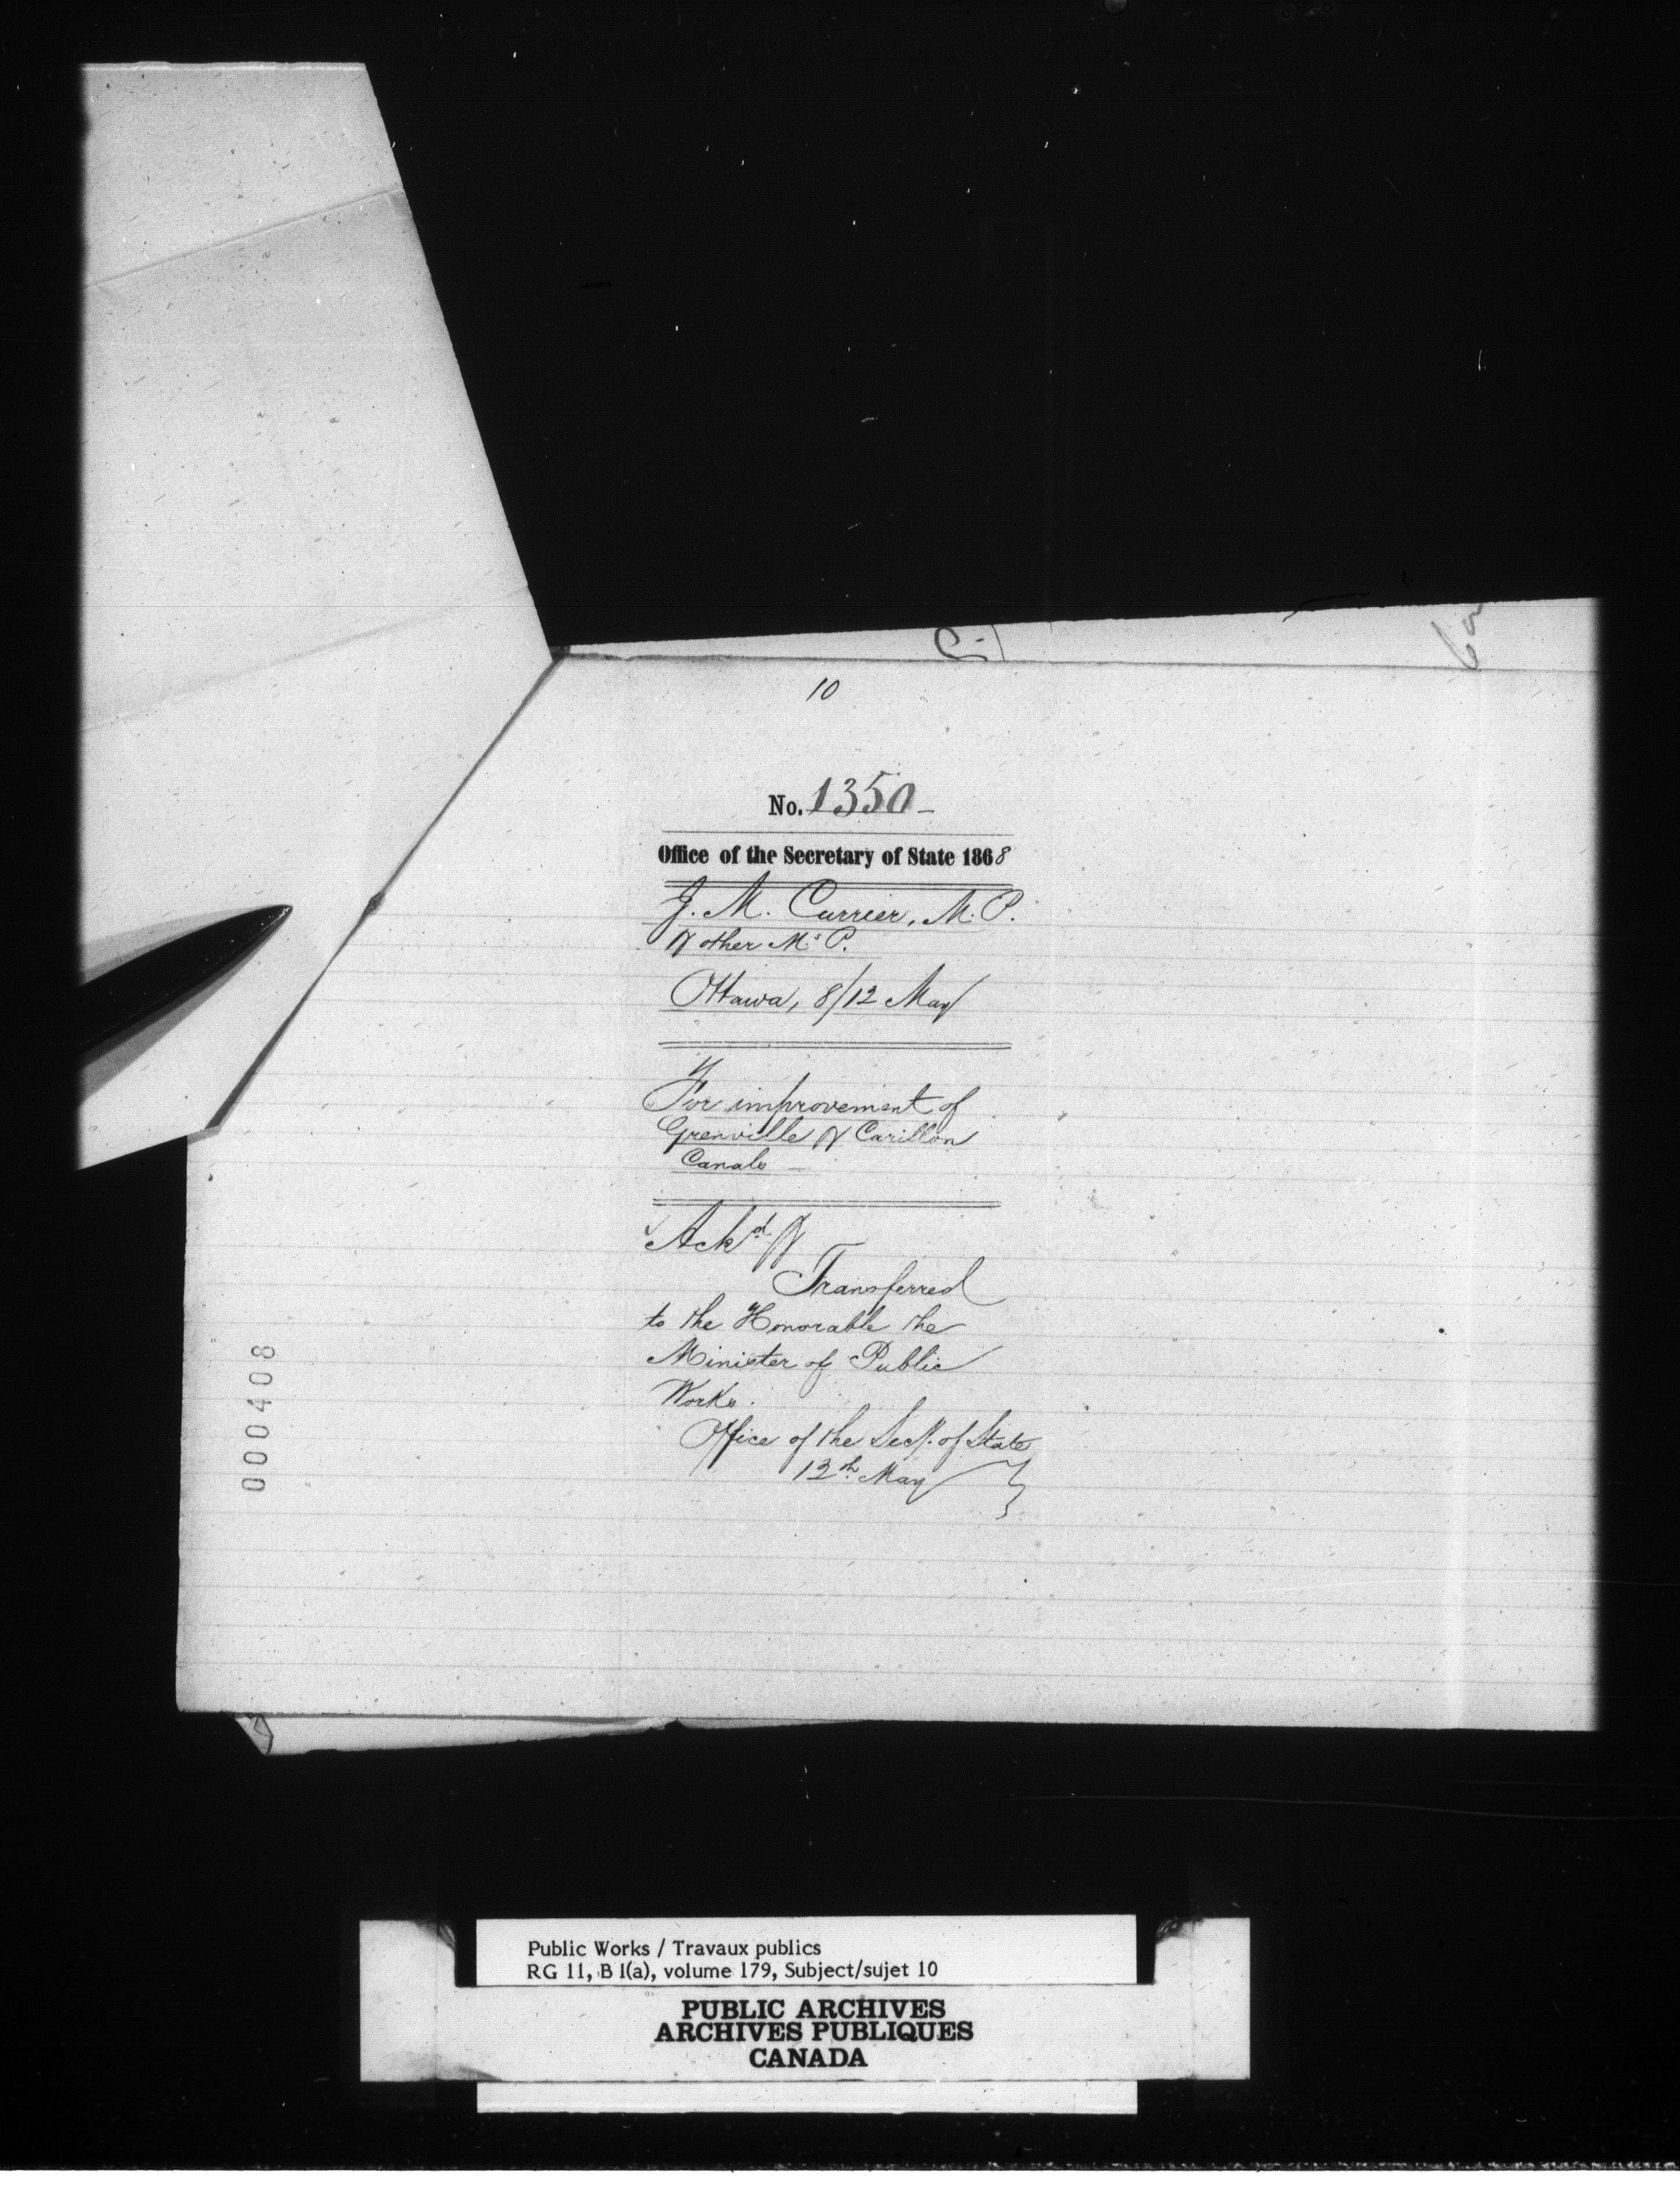 10
No. 1350-
Office of the Secretary of State 1868
J. M. Currier, M. P.
& other Ms. P.
Ottawa, 8/12 May
For improvement of
Grenville & Carillon
Canals
Ackd. &
Transferred
to the Honorable the
Minister of Public
Works.
Office of the Secy. of State
12th May
000408
Public Works / Travaux publics
RG 11, B 1(a), volume 179, Subject/sujet 10
PUBLIC ARCHIVES
ARCHIVES PUBLIQUES
CANADA